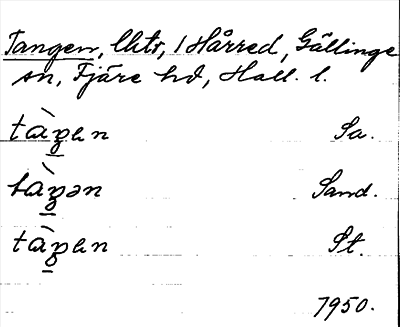 Tangen, lktr, 1 Hårred, Gällinge
sn, Fjäre hd, Hall. l.
tàŋən Sa.
tàŋən Sand.
tàŋən St.
1950.